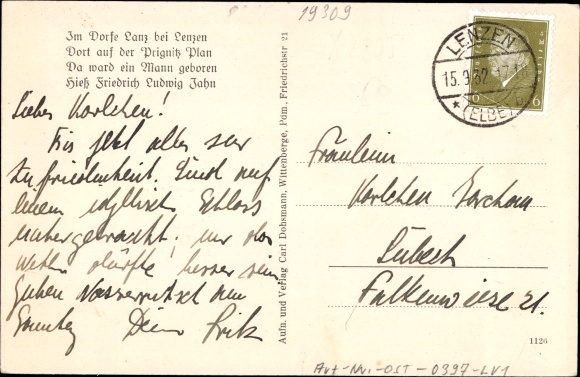 19309
Im Dorfe Lanz bei Lenzen
Dort auf der Prignitz Plan
Da ward ein Mann geboren
Hieß Friedrich Ludwig Jahn
LENZEN
15.9.32
* (ELBE)
6 6
Liebes Karlchen!
Bis jetzt alles zur
Zufriedenheit. Sind auf
einem idyllisch Schloss
untergebracht, nur das
Wetter dürfte besser sein
Guten Wasserrutsch am
Sonntag Dein Fritz
Aufn. und Verlag Carl Dohsmann, Wittenberge, Pdm., Friedrichstr 21
Fräulein
Karlchen
Lübeck
Falkenwiese 21.
1126
Avt-Nr.-OST-0397-LV1